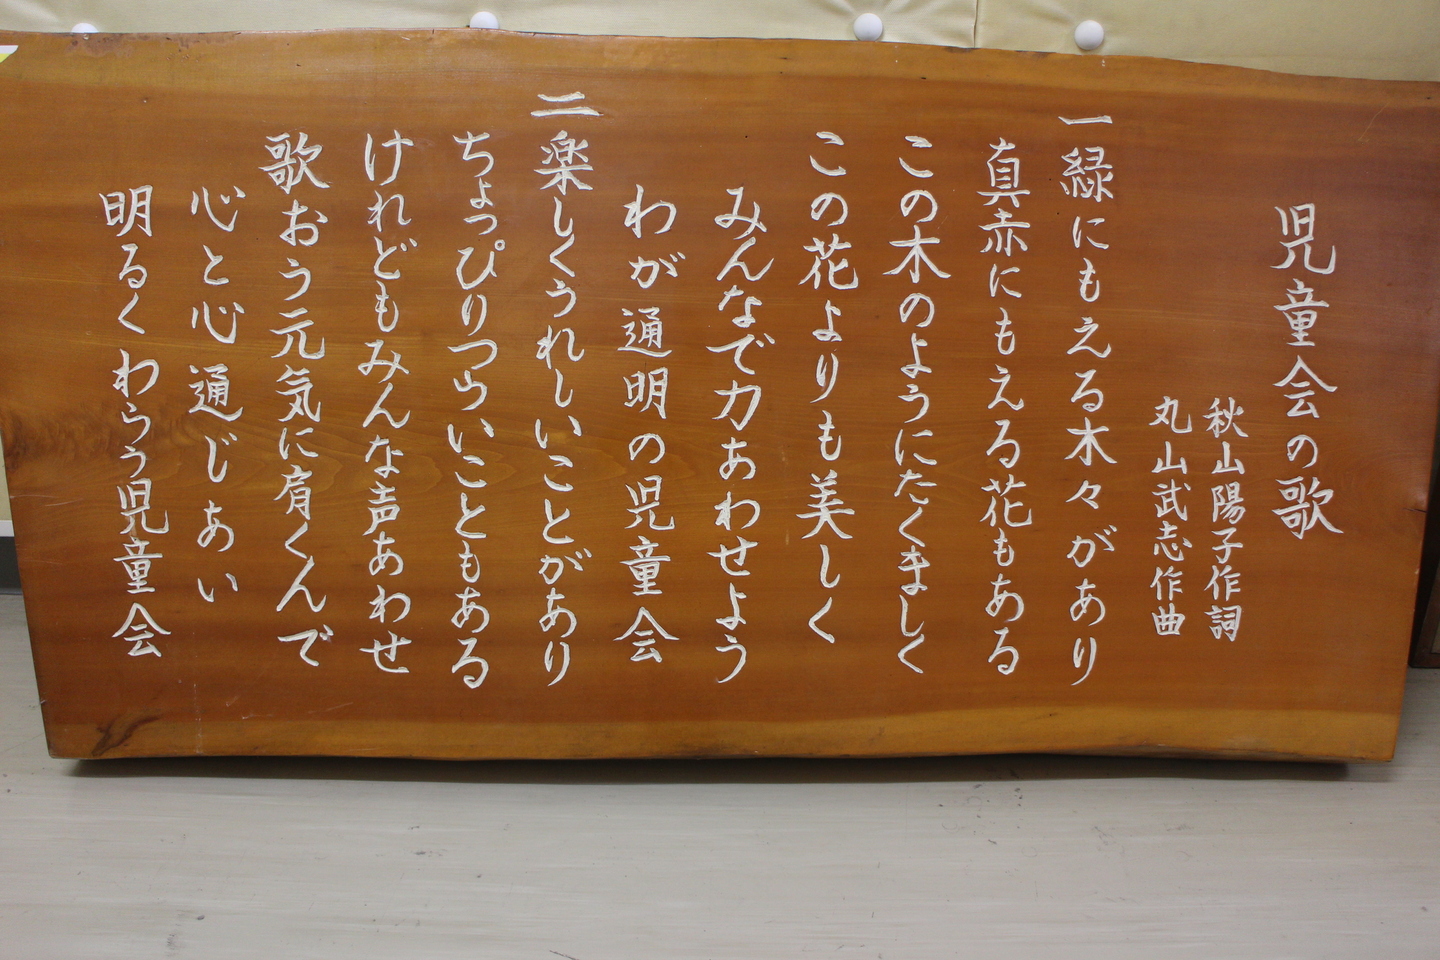 児童会の歌
秋山陽子作詞
丸山武志作曲
一 緑にもえる木々があり
真赤にもえる花もある
この木のようにたくましく
この花よりも美しく
みんなで力あわせよう
わが通明の児童会
二 楽しくうれしいことがあり
ちょっぴりつらいこともある
けれどもみんな声あわせ
歌おう元気に肩くんで
心と心通じあい
明るくわらう児童会